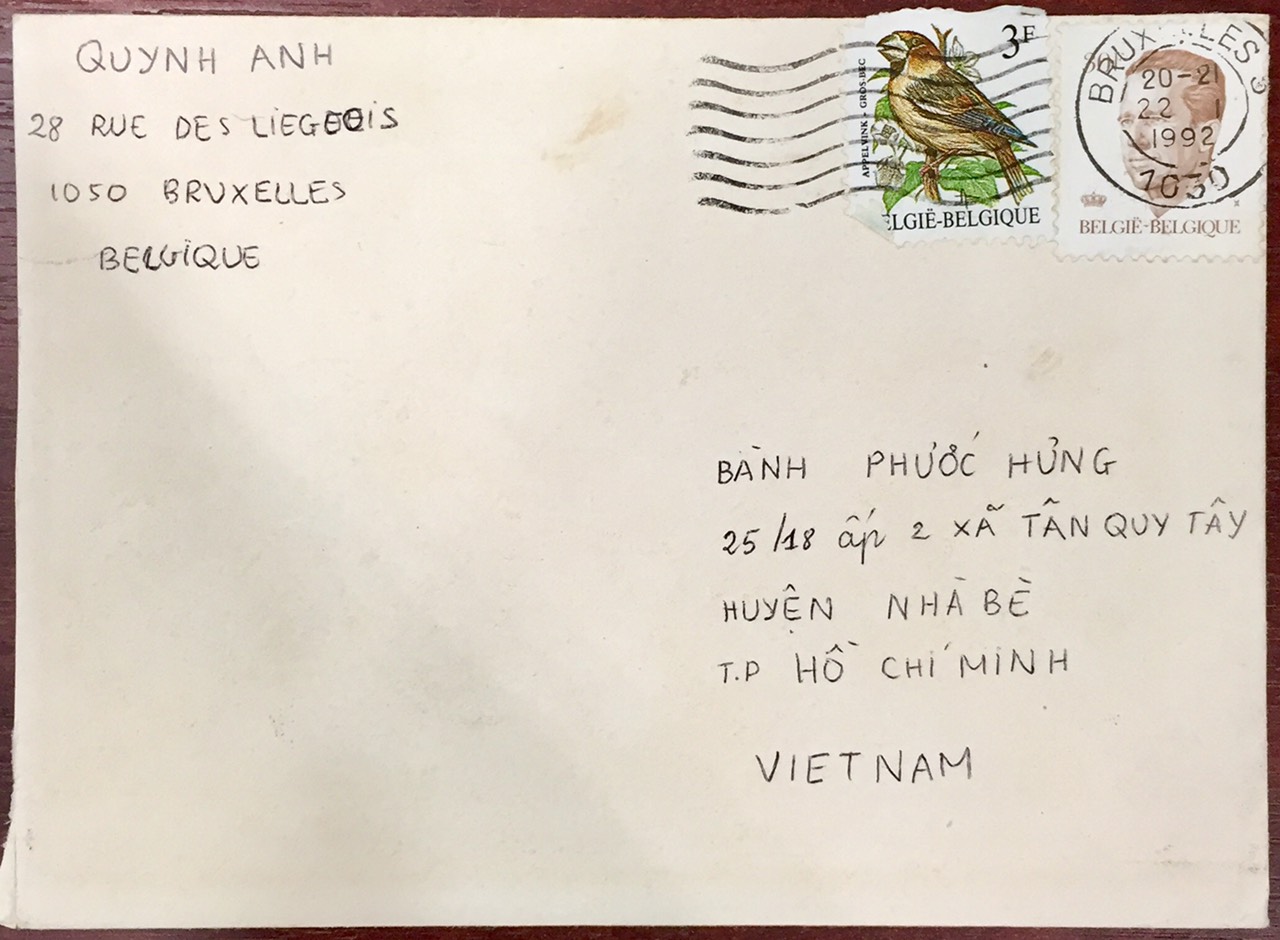 QUYNH ANH
28 RUE DES LIEGEOIS
1050 BRUXELLES
BELGIQUE
3F
APPELVINK - GROS-BEC
ELGIË-BELGIQUE
BELGIË-BELGIQUE
20-21
22 1
1992
BÀNH PHƯỚC HỬNG
25/18 ấp 2 XÃ TÂN QUY TÂY
HUYỆN NHÀ BÈ
T.P HỒ CHÍ MINH
VIETNAM